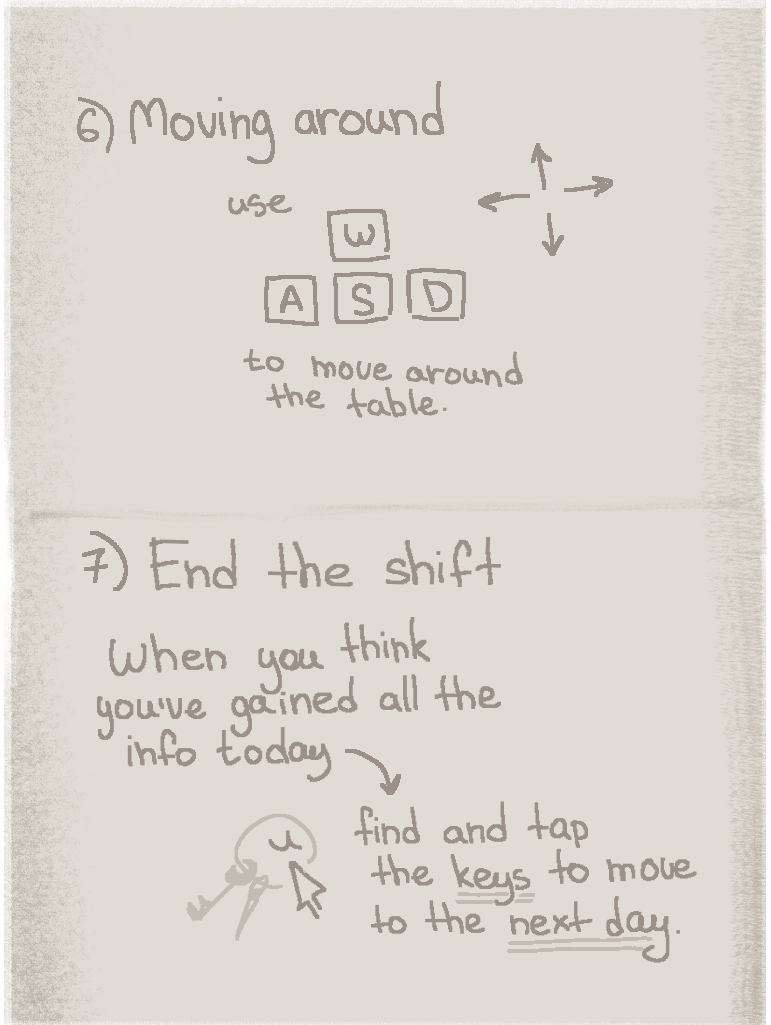 6) Moving around
use
W
A S D
to move around
the table.
7) End the shift
When you think
you've gained all the
info today
find and tap
the keys to move
to the next day.
u